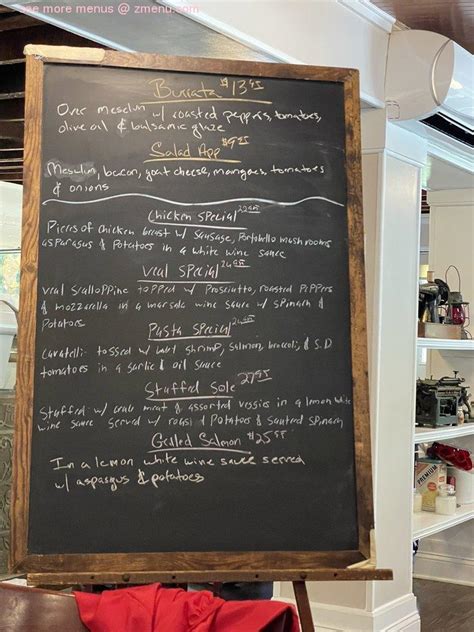 see more menus @ zmenu.com
Burrata $13.95
Over mesclun w/ roasted peppers, tomatoes,
olive oil & balsamic glaze
Salad App $9.95
Mesclun, bacon, goat cheese, mangoes, tomatoes
& onions
Chicken Special 22.95
Pieces of chicken breast w/ sausage, Portobello mushrooms
asparagus & Potatoes in a white wine sauce
Veal Special 24.95
Veal Scalloppine topped w/ Prosciutto, roasted Peppers
& mozzarella in a marsala wine sauce w/ spinach &
Potatoes
Pasta Special 24.95
Cavatelli tossed w/ baby shrimp, salmon, broccoli, & S.D.
tomatoes in a garlic & oil sauce
Stuffed Sole 27.95
Stuffed w/ crab meat & assorted veggies in a lemon white
wine sauce served w/ roast Potatoes & sauteed spinach
Grilled Salmon $25.95
In a lemon white wine sauce served
w/ asparagus & potatoes
PREMIUM